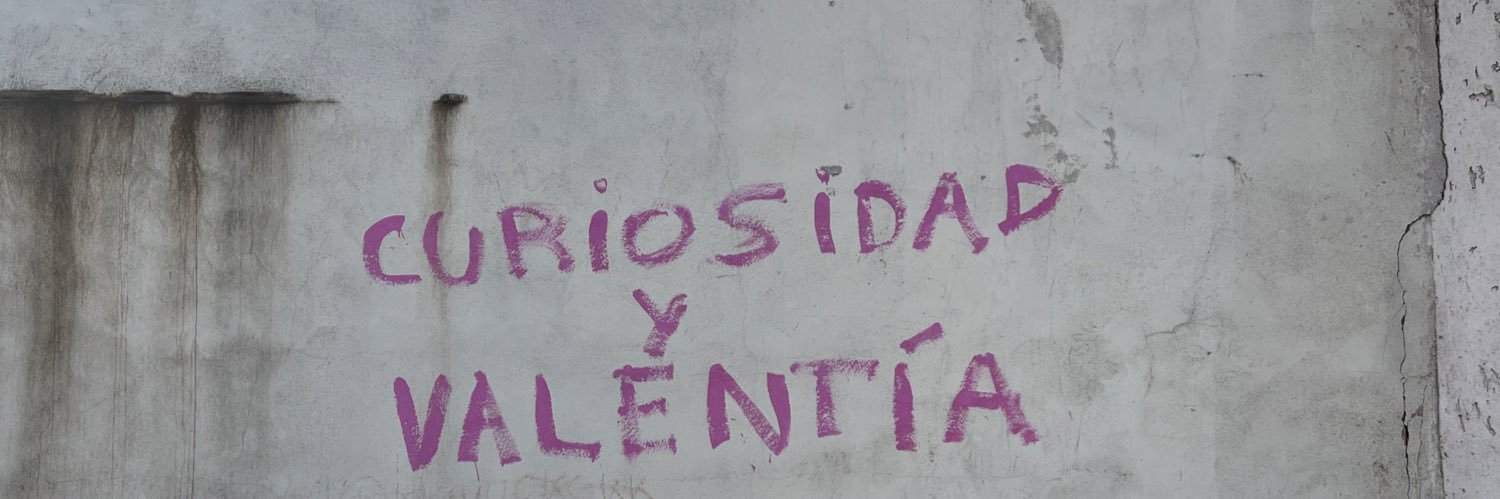 CURiOSiDAD
Y
VALENTÍA